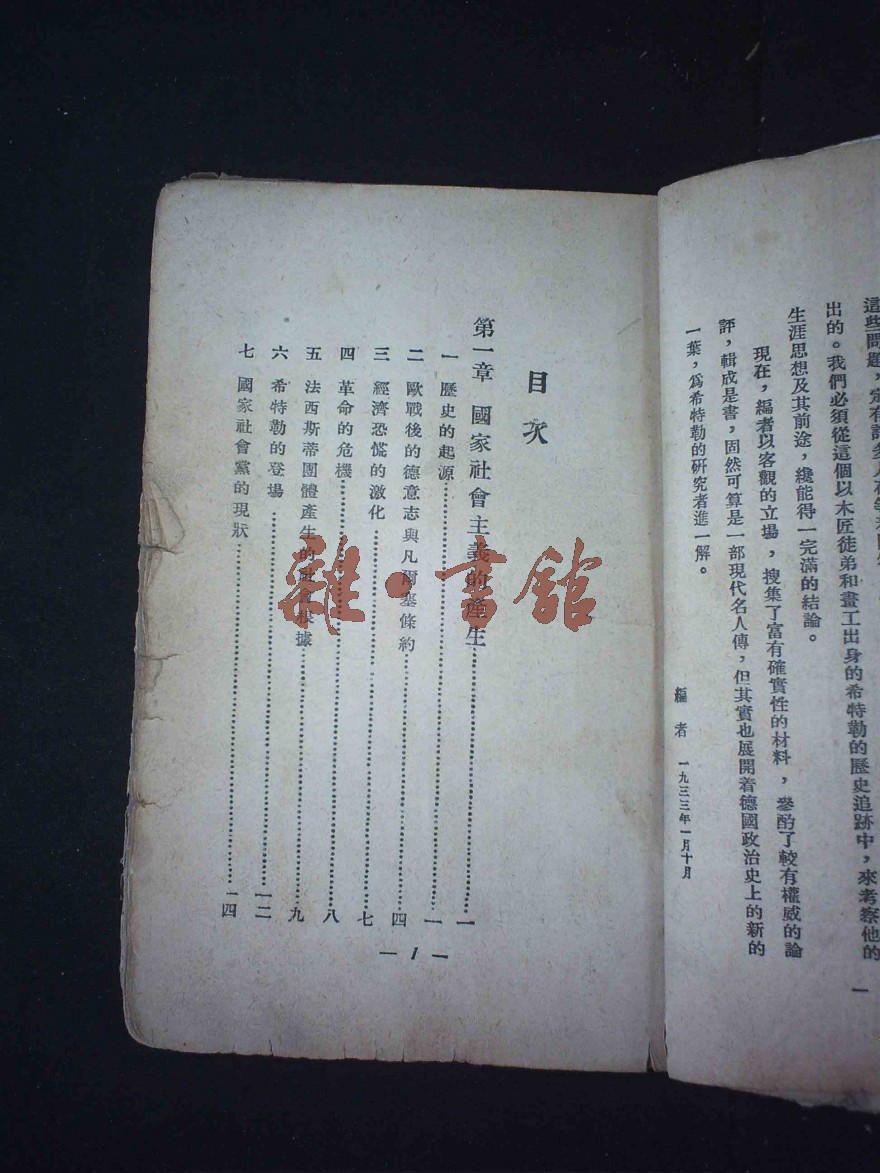 這些問題，定有許多人在等
出的。我們必須從這個以木匠徒弟和畫工出身的希特勒的歷史追跡中，來考察他的
生涯思想及其前途，纔能得一完滿的結論。
現在，編者以客觀的立場，搜集了富有確實性的材料，參酌了較有權威的論
評，輯成是書，固然可算是一部現代名人傳，但其實也展開着德國政治史上的新的
一葉，爲希特勒的研究者進一解。
編者 一九三三年一月十月
一
目次
第一章 國家社會主義的產生……一
一 歷史的起源……一
二 歐戰後的德意志與凡爾塞條約……四
三 經濟恐慌的激化……七
四 革命的危機……八
五 法西斯蒂團體產生的社會根據……九
六 希特勒的登場……一二
七 國家社會黨的現狀……一四
— 1 —
雜·書館